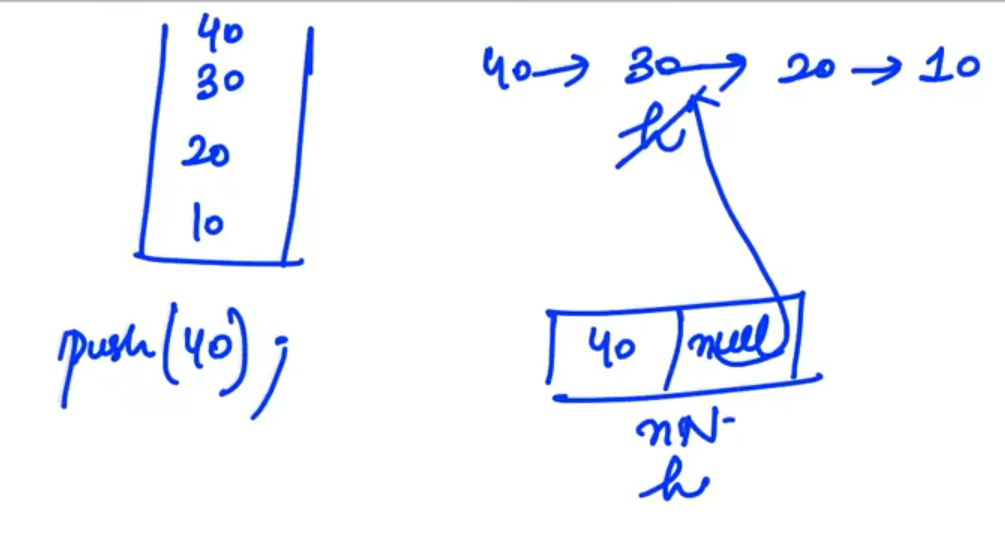 40
30
20
10
push(40);
40 → 30 → 20 → 10
h
40 null
nN
h